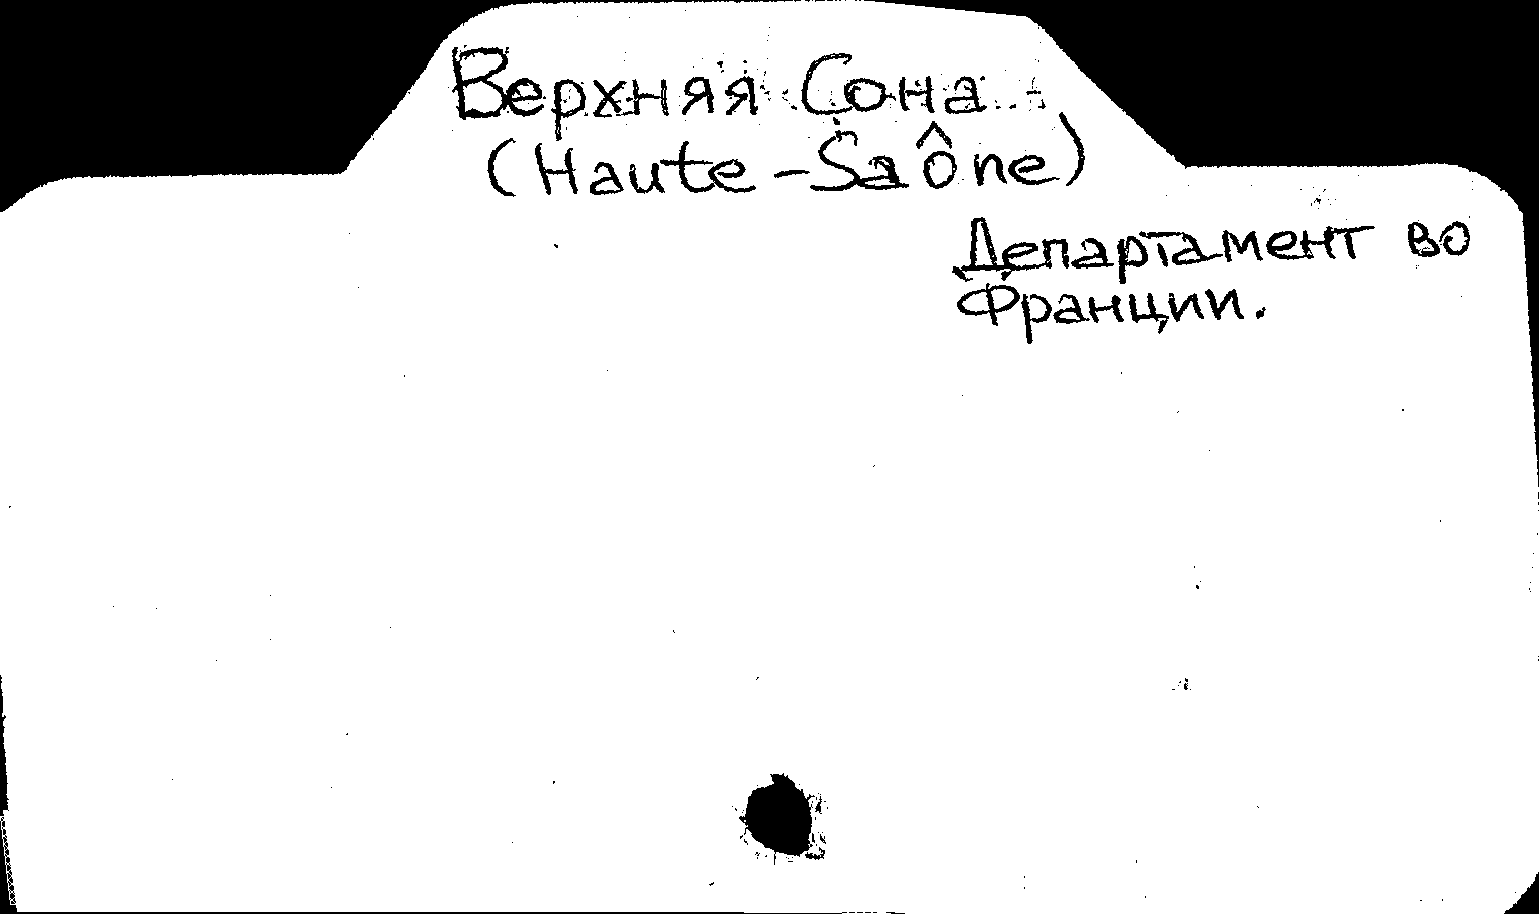 Верхняя Сона
(Haute-Saône)
Департамент во
Франции.